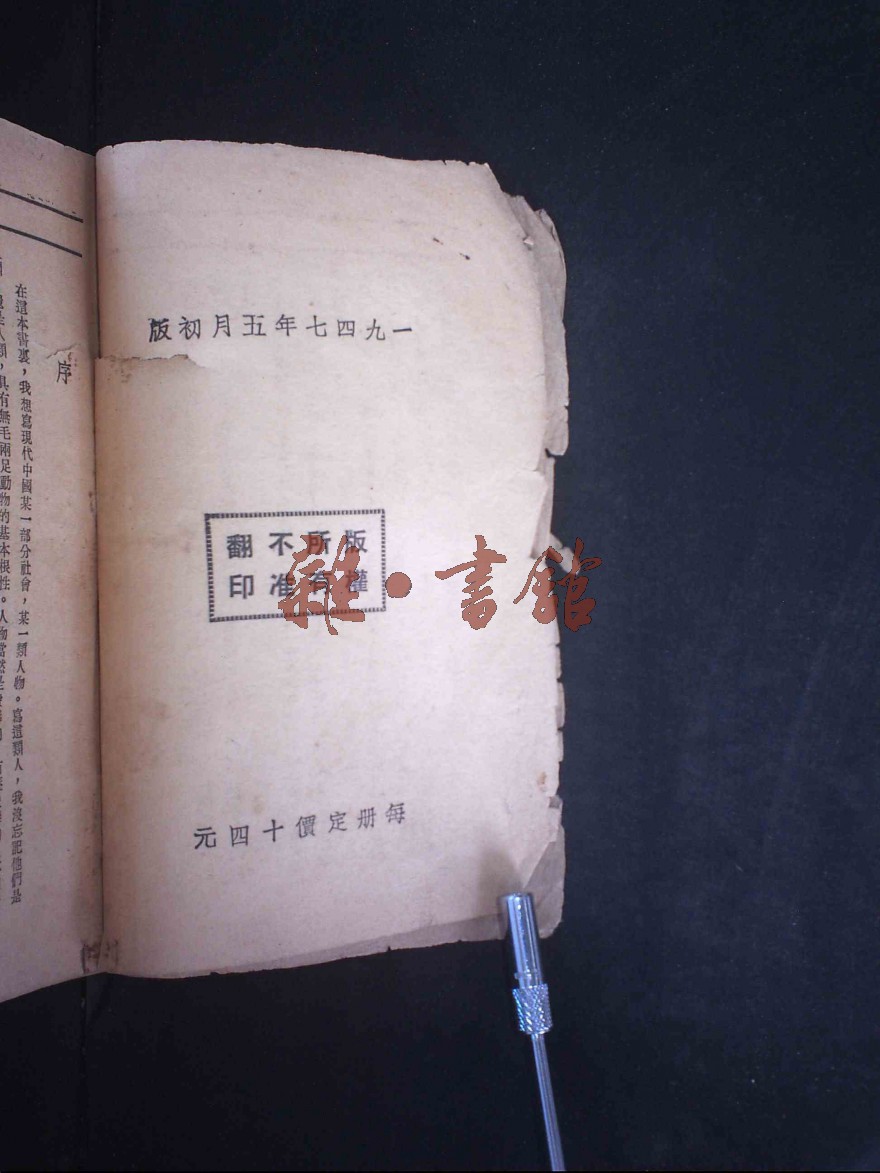 一九四七年五月初版
版所不翻
權有准印
每册定價十四元
序
在這本書裏，我想寫現代中國某一部分社會，某一類人物。寫這類人，我沒忘記他們是
人類，具有無毛兩足動物的基本根性。人物當然是
雜·書館